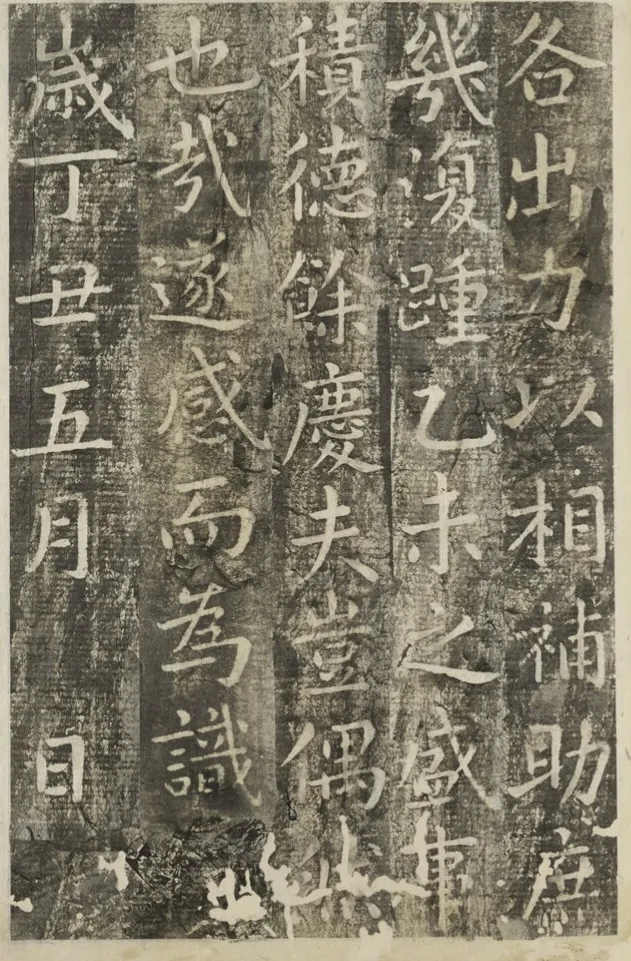 各出力以相補助庶
幾復踵乙未之盛事
積德餘慶夫豈偶然
也哉遂感而為識
歲丁丑五月日